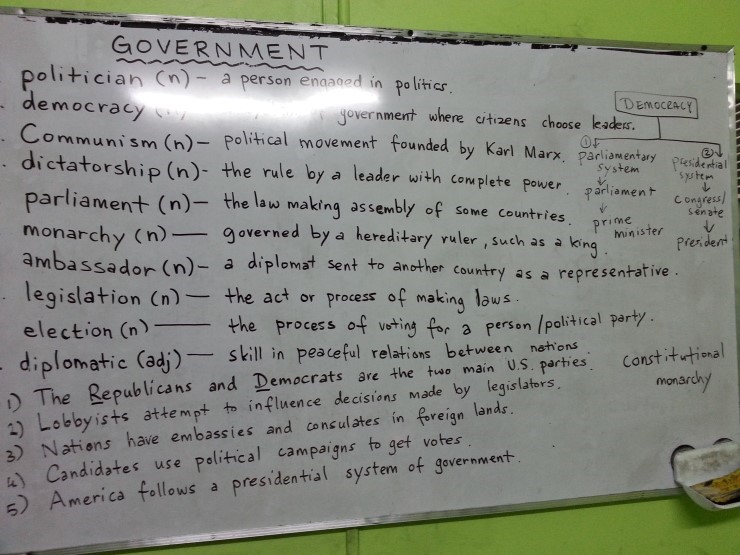 GOVERNMENT
politician (n) - a person engaged in politics.
democracy government where citizens choose leaders.
Communism (n) - political movement founded by Karl Marx.
dictatorship (n) - the rule by a leader with complete power.
parliament (n) - the law making assembly of some countries.
monarchy (n) — governed by a hereditary ruler, such as a king.
ambassador (n) - a diplomat sent to another country as a representative.
legislation (n) — the act or process of making laws.
election (n) — the process of voting for a person/political party.
diplomatic (adj) — skill in peaceful relations between nations.
1) The Republicans and Democrats are the two main U.S. parties.
2) Lobbyists attempt to influence decisions made by legislators.
3) Nations have embassies and consulates in foreign lands.
4) Candidates use political campaigns to get votes.
5) America follows a presidential system of government.
DEMOCRACY
① parliamentary
system
parliament
prime
minister
② presidential
system
congress/
senate
president
constitutional
monarchy